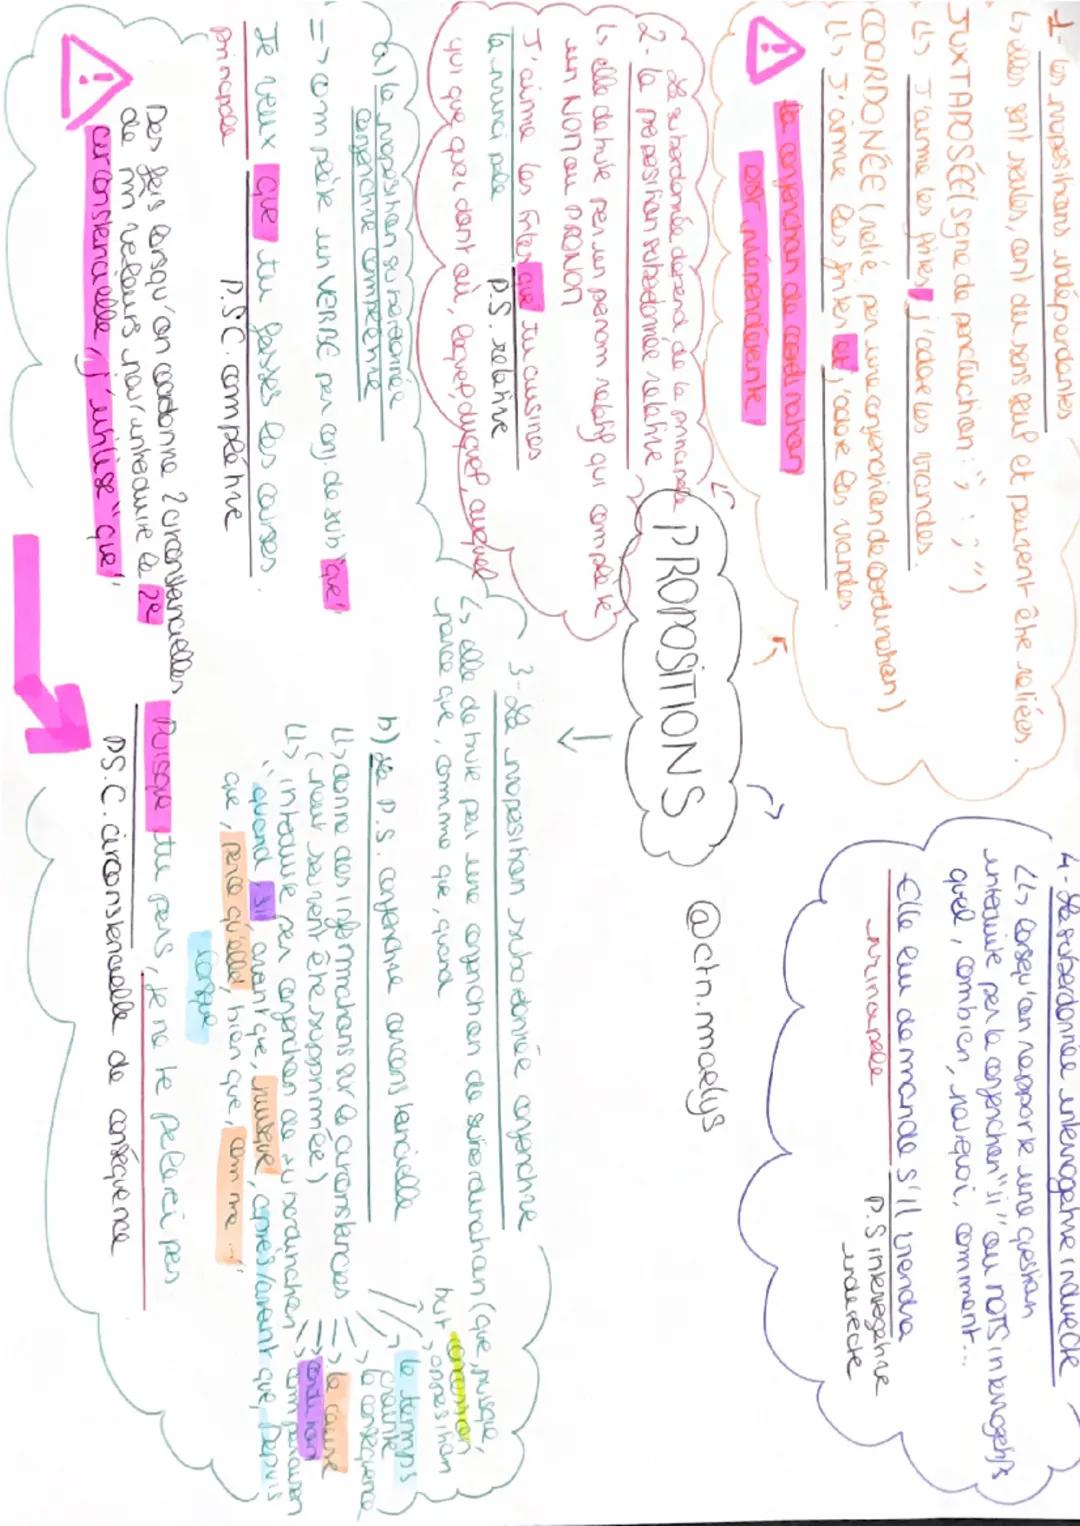 PROPOSITIONS
@ctn.maelys
1- les propositions indépendantes
↳ elles sont seules, ont du sens seul et peuvent être reliées.
JUXTAPOSÉE (signe de ponctuation : "; : , ")
↳ J'aime les frites, j'adore les viandes.
COORDONÉE (relié par une conjonction de coordination)
↳ J'aime les frites et j'adore les viandes.
la conjonction de coordination
est indépendante
La subordonnée dépend de la principale
2- la proposition subordonnée relative
↳ elle débute par un pronom relatif qui complète
un NOM ou PRONOM
J'aime les frites que tu cuisines
la principale P.S. relative
qui que quoi dont où, lequel, duquel, auquel
3- La proposition subordonnée conjonctive
↳ elle débute par une conjonction de subordination (que, puisque,
parce que, comme que, quand
a) la proposition subordonnée
conjonctive complétive
=> complète un VERBE par conj. de sub "que"
Je veux que tu fasses les courses.
principale P.S.C. complétive
b) La P.S. conjonctive circonstancielle
↳ donne des informations sur la circonstances
(peut seivent être supprimée)
↳ introduire par conjonction de subordination
"quand, si, avant que, puisque, après/avant que, Depuis
que, parce qu'elle, bien que, comme..."
lorsque
but concession
opposition
le temps
crainte
la conséquence
la cause
condition
comparaison
Des fois lorsqu'on coordonne 2 circonstancielles
de m̂ valeurs pour introduire la 2e
circonstancielle, j'utilise "que"
Puisque tu pars, je ne te parlerai pas
PS.C. circonstancielle de conséquence
4- La subordonnée interrogative indirecte
↳ lorsqu'on rapporte une question
introduite par la conjonction "si" ou MOTS interrogatifs
quel, combien, pourquoi, comment...
Elle lui demande s'il viendra
principale P.S interrogative
indirecte